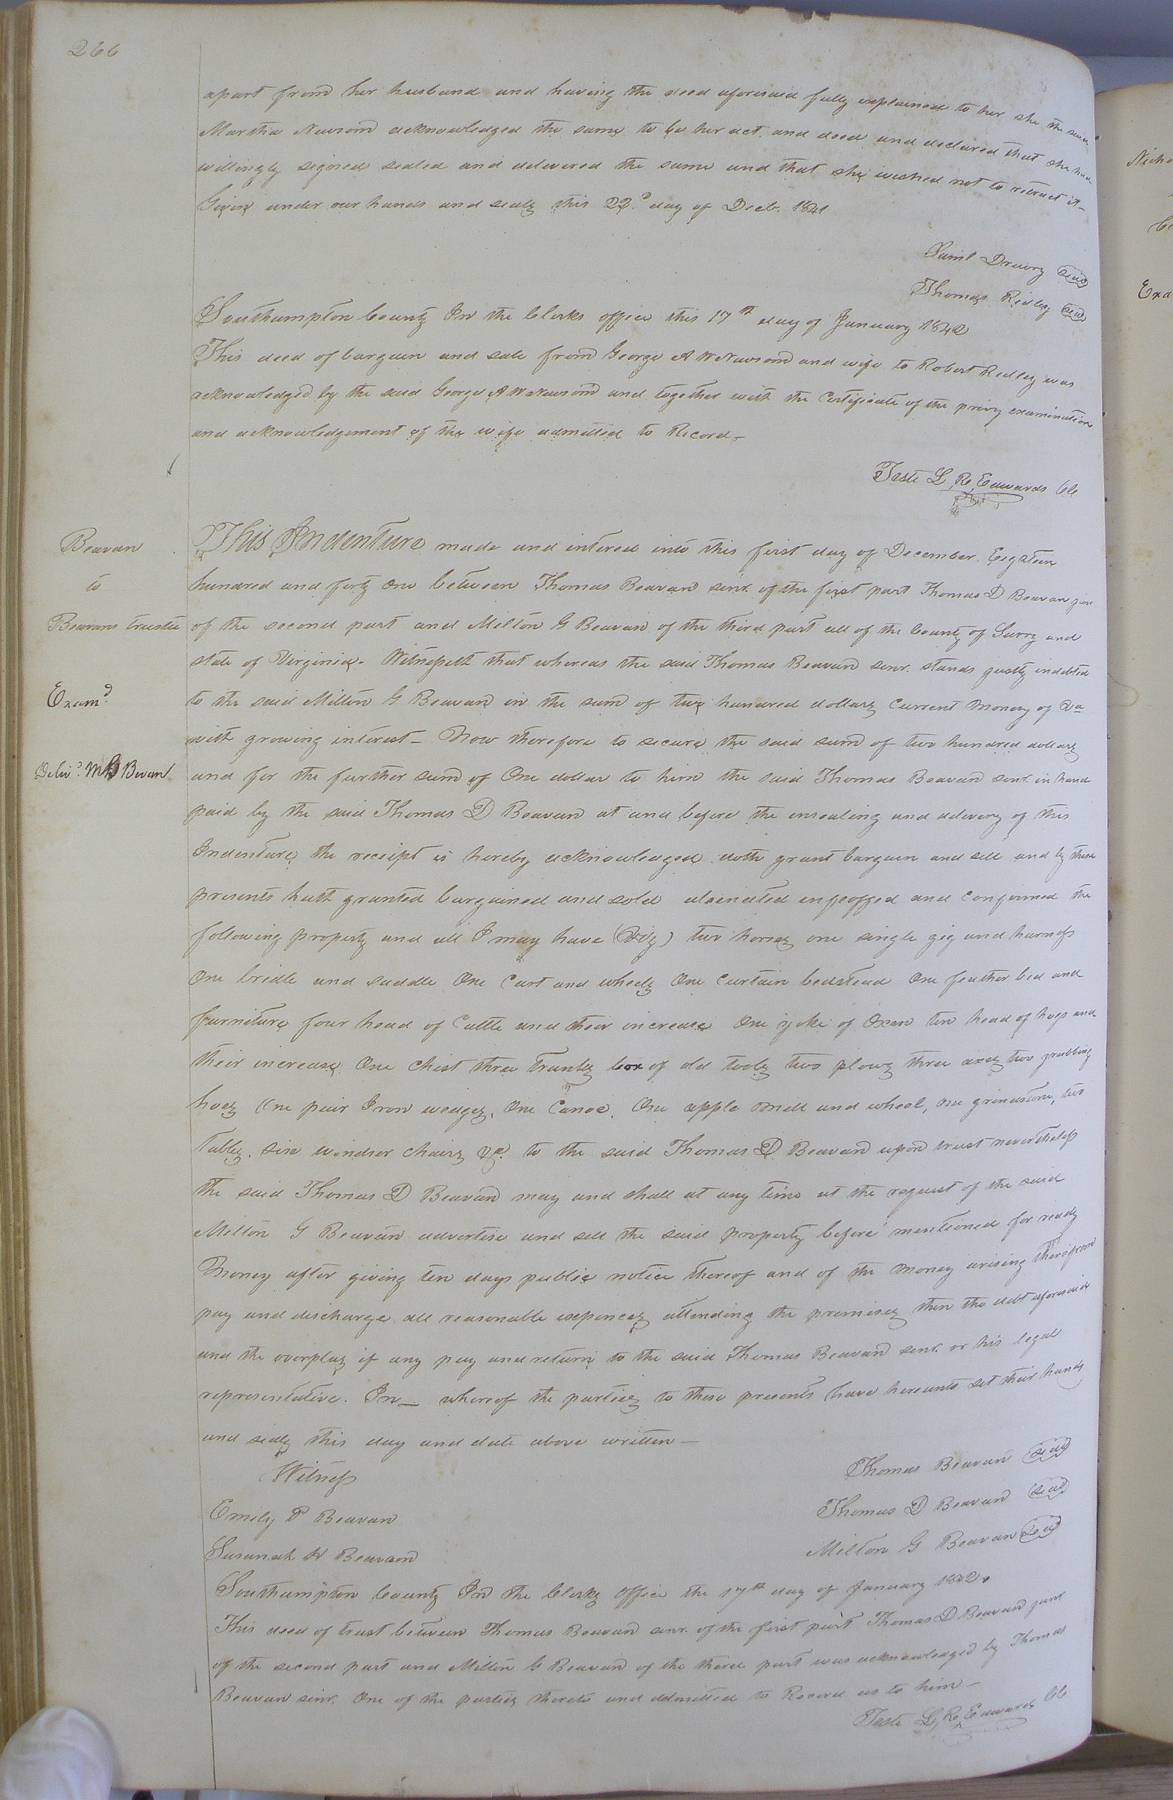 266
apart from her husband and having the deed aforesaid fully explained to her she the said
Martha Newsom acknowledged the same to be her act and deed and declared that she had
willingly signed sealed and delivered the same and that she wished not to retract it—
Given under our hands and seals this 22d day of Decb. 1841
Saml Drewry seal
Thomas Ridley seal
Southampton County In the Clerks office this 17th day of January 1842
This deed of bargain and sale from George A W Newsom and wife to Robert Ridley was
acknowledged by the said George A W Newsom and together with the Certificate of the privy examination
and acknowledgement of the wife admitted to Record—
Teste L. R. Edwards Clk
Beavan
to
Beavans trustee
Examd
Delivd M G Bevan
This Indenture made and intered into this first day of December Eigsteen
hundred and forty one between Thomas Beavan senr. of the first part Thomas D Beavan jun
of the second part and Milton G Beavan of the third part all of the County of Surry and
state of Virginia. Witnesseth that whereas the said Thomas Beavan senr. stands justly indebted
to the said Milton G Beavan in the sum of two hundred dollars current money of Va
with growing interest— Now therefore to secure the said sum of two hundred dollars
and for the further sum of One dollar to him the said Thomas Beavan senr. in hand
paid by the said Thomas D Beavan at and before the ensealing and delivery of this
Indenture the receipt is hereby acknowledged doth grant bargain and sell and by these
presents hath granted bargained and sold alienated enfeoffed and confirmed the
following property and all I may have (Viz) two horses one single gig and harness
One bridle and saddle One Cart and wheels One curtain bedstead One feather bed and
furniture four head of Cattle and their increase One yoke of Oxen ten head of hogs and
their increase One chest three trunks box of old tools two plows three axes two grubbing
hoes One pair Iron wedges, One Canoe, One apple mill and wheel, one grindstone, two
tables, six windsor chairs &c. to the said Thomas D Beavan upon trust nevertheless
the said Thomas D Beavan may and shall at any time at the request of the said
Milton G Beavan advertise and sell the said property before mentioned for ready
Money after giving ten days public notice thereof and of the money arising therefrom
pay and discharge all reasonable expences attending the premises then the debt aforesaid
and the overplus if any pay and return to the said Thomas Beavan senr. or his legal
representative. In— whereof the parties to these presents have hereunto set their hands
and seals this day and date above written—
Witness
Thomas Beavan seal
Emely P Beavan
Thomas D Beavan seal
Susanah H Beavan
Milton G Beavan seal
Southampton County In the Clerks Office the 17th day of January 1842.
This deed of trust between Thomas Beavan senr. of the first part Thomas D Beavan junr
of the second part and Milton G Beavan of the third part was acknowledged by Thomas
Beavan senr. One of the parties thereto and admitted to Record as to him—
Teste L. R. Edwards Clk
Exa